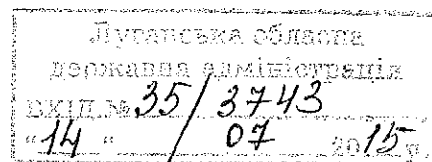 Луганська обласна
державна адміністрація
ВХІД № 35/3743
"14" 07 2015 р.